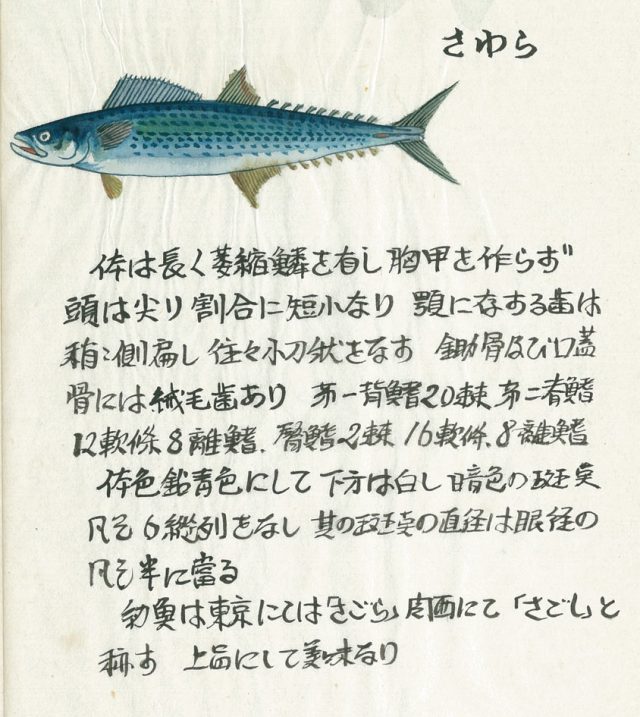 さわら
体は長く萎縮鱗を有し 胸甲を作らず
頭は尖り 割合に短小なり 顎に存する歯は
稍〻側扁し 往々小刀状をなす 鋤骨及び口蓋
骨には絨毛歯あり 第一背鰭20棘 第二脊鰭
12軟條 8離鰭、臀鰭2棘 16軟條、8離鰭
体色鉛青色にして 下方は白し 暗色の斑点
凡そ6縦列をなし 其の斑点の直径は眼径の
凡そ半に當る
幼魚は東京にては「さごら」関西にて「さごし」と
称す 上品にして美味なり